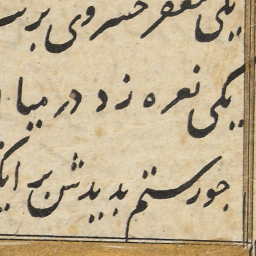 یکی مغفر خسروی بر
یکی نعره زد در میا
چو رستم بدیدش بر